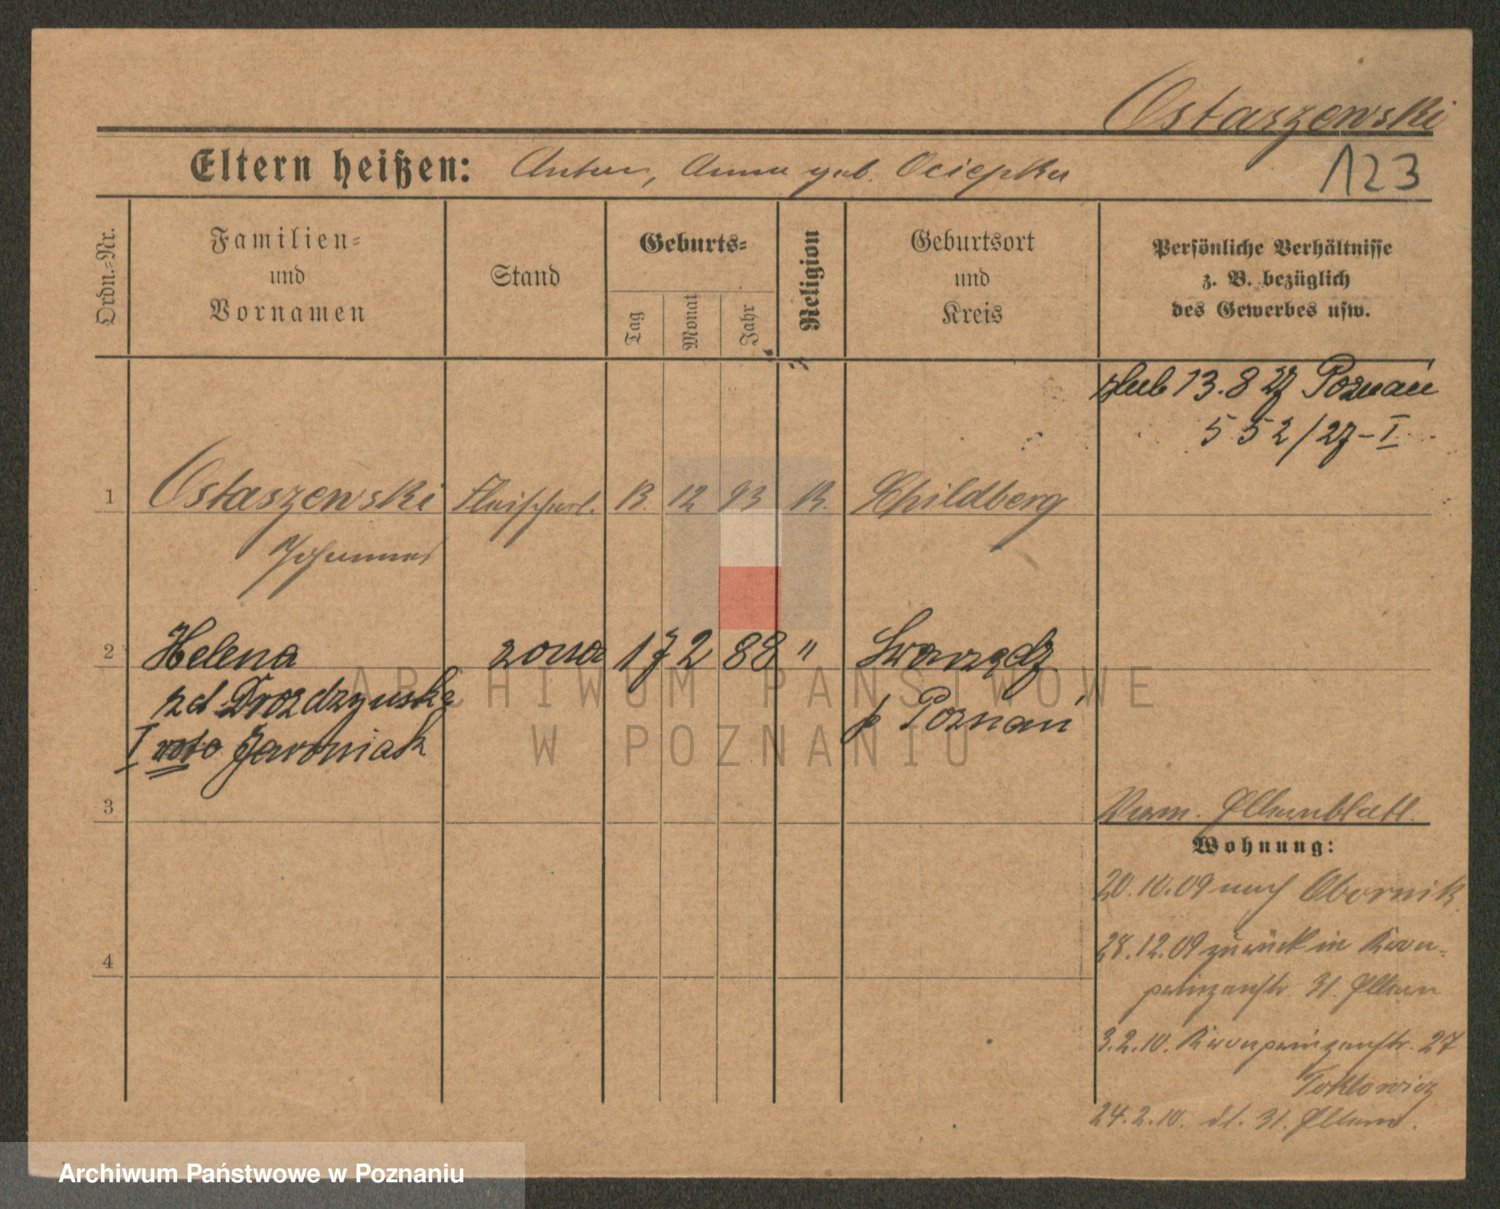 Ostaszewski
Eltern heißen: Anton, Anna geb. Ociepka
123
Ordn.-Nr.
Familien-
und
Vornamen
Stand
Geburts-
Tag
Monat
Jahr
Religion
Geburtsort
und
Kreis
Persönliche Verhältnisse
z. B. bezüglich
des Gewerbes usw.
ślub 13.8 27 Poznań
552/27-I
1 Ostaszewski 13. 12 93 K. Schildberg
Johannes
2 Helena żona 17 2 88 " Swarzędz
zd Drozdzyńska
p Poznań
I voto Jaroniak
3
Verm. Elternblatt.
Wohnung:
20.10.09 nach Obornik.
4
28.12.09 zurück in Kron-
prinzenstr. 31. Eltern
3.2.10. Kronprinzenstr. 27
24.2.10. dl. 31. Eltern.
ARCHIWUM PAŃSTWOWE
W POZNANIU
Archiwum Państwowe w Poznaniu